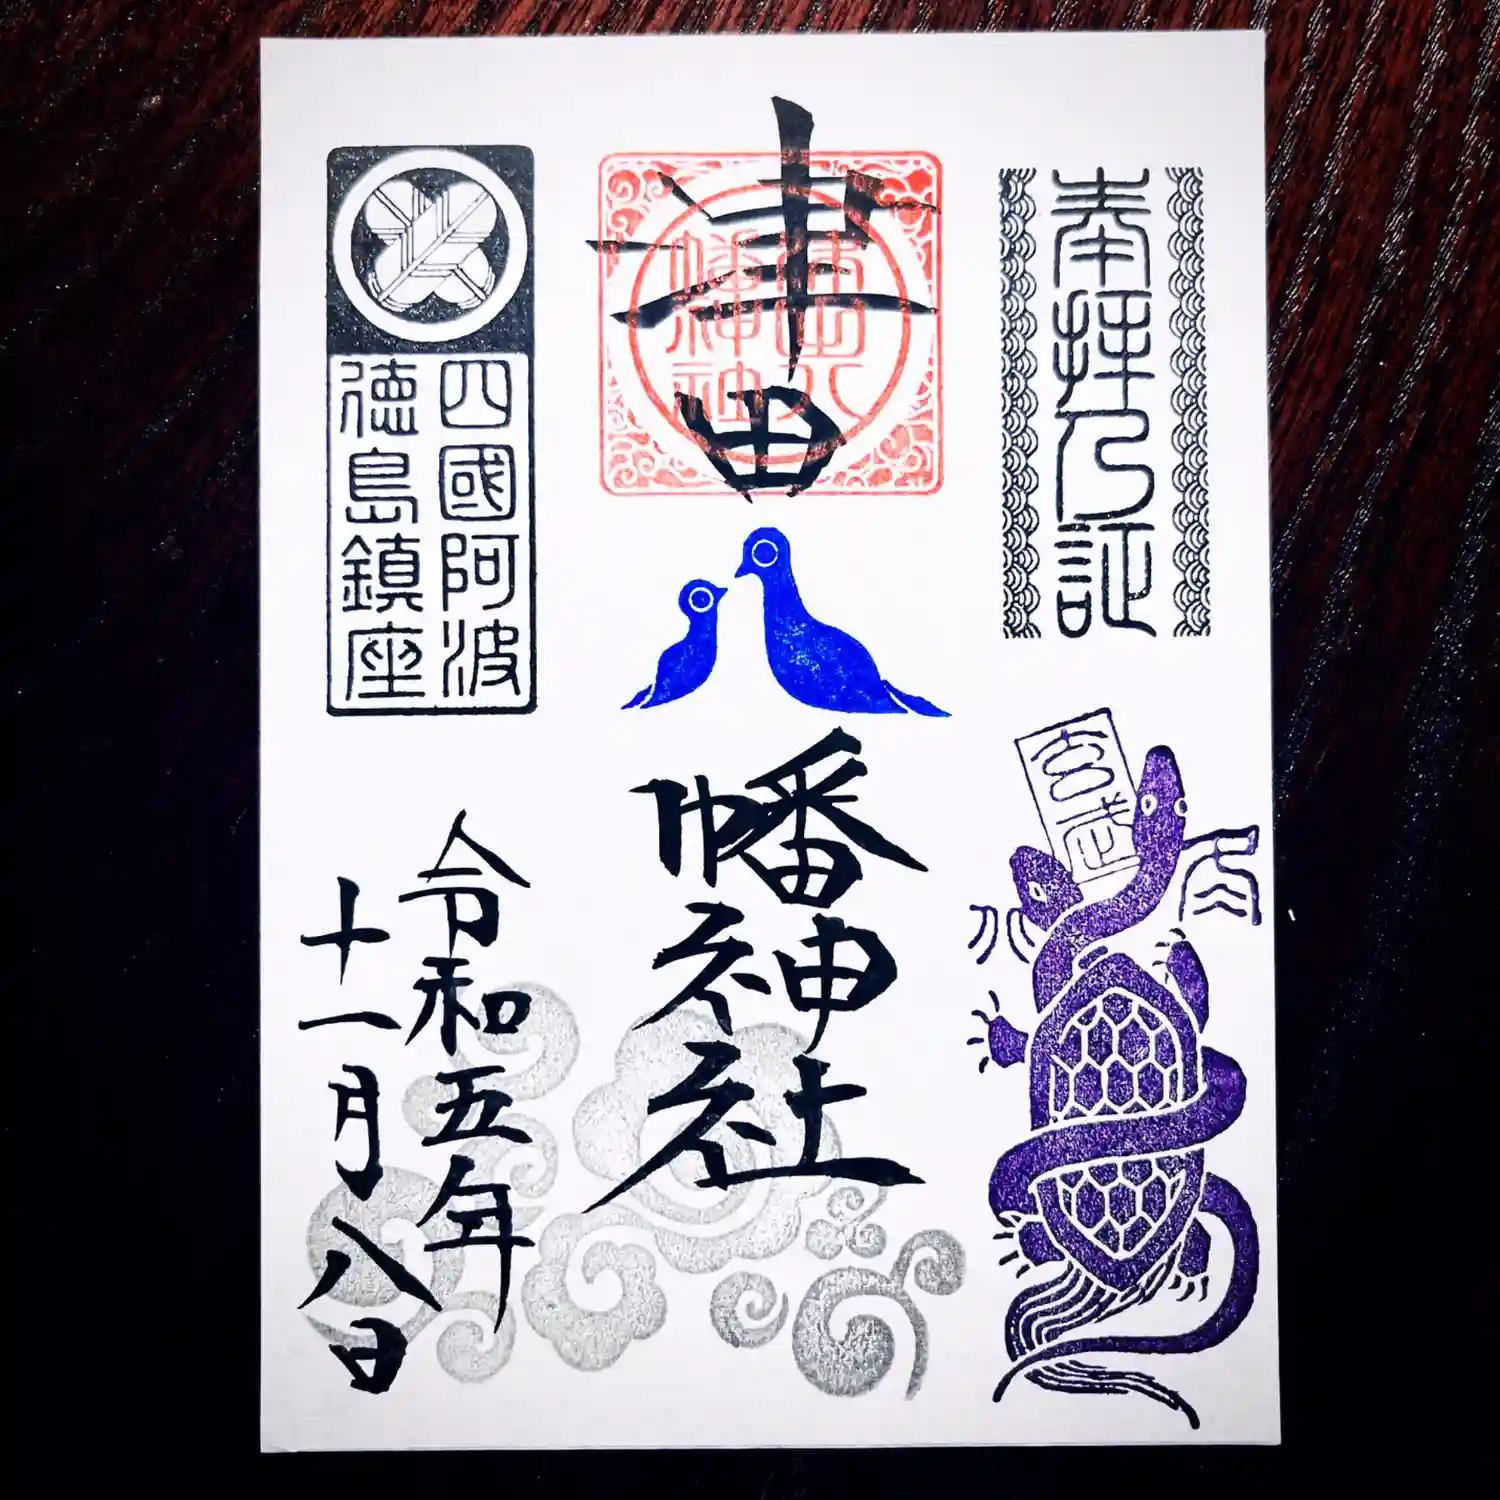 奉拝乃証
玄武
冬
水
津田
八幡神社
津田八
幡神社
四國阿波
徳島鎮座
令和五年
十一月八日